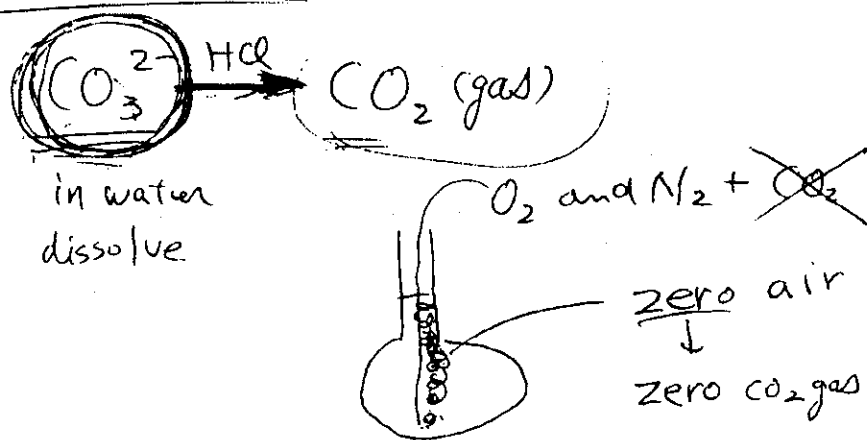 CO₃²⁻ HCl → CO₂ (gas)
in water
dissolve
O₂ and N₂ + CO₂
zero air
↓
zero CO₂ gas